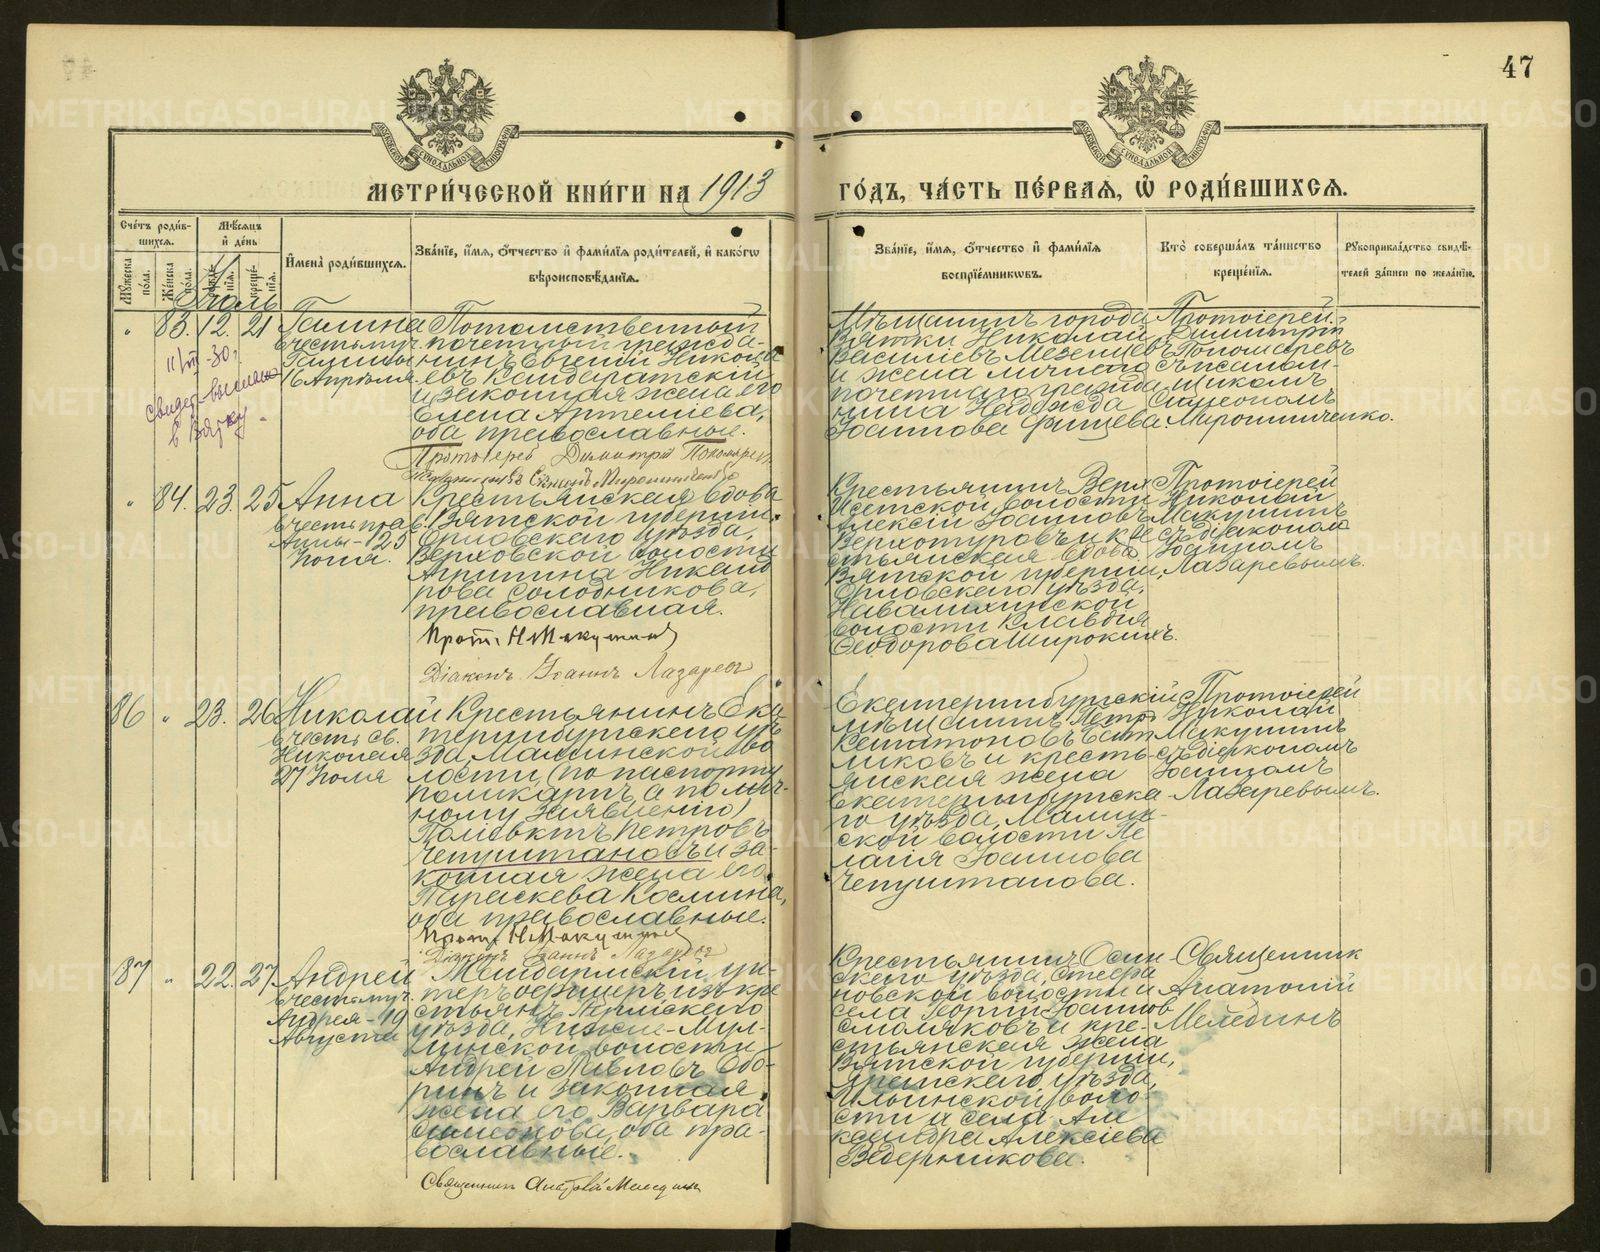 47
МЕТРИ́ЧЕСКОЙ КНИ́ГИ НА 1913
ГО́ДЪ, ЧА́СТЬ ПЕ́РВАѦ, Ѡ РОДИ́ВШИХСѦ.
Сче́тъ роди́в-
шихся.
Му́жеска по́ла.
Же́нска по́ла.
Мѣ́сяцъ
и де́нь
рожде́нія.
креще́-
нія.
Имена̀ роди́вшихся.
Зва́ніе, и́мя, о́тчество и фами́лія роди́телей, и како́гѡ
вѣроисповѣ́данія.
Зва́ніе, и́мя, о́тчество и фами́лія
воспріе́мниковъ.
Кто̀ соверша́лъ та́инство
креще́нія.
Рукоприкла́дство свидѣ́-
телей за́писи по жела́нію.
Іюль
" 83. 12. 21 Галина
въ честь муч.
Галины
16 Апрѣля.
свидет. выслано
в Вятку
Потомственный
почетный гражда-
нинъ Евгеній Никола
евъ Кандаратскій
и законная жена его
Елена Артеміева,
оба православные.
Протоіерей Димитрій Пономарев
Псаломщикъ Симеонъ Мирошниченко
Мѣщанинъ города
Вятки Николай
Василіевъ Мезенцев
и жена личнаго
почетнаго гражда
нина Надежда
Іоаннова Фищева.
Протоіерей
Димитрій
Пономаревъ
съ псалом-
щикомъ
Симеономъ
Мирошниченко.
" 84. 23. 25 Анна
въ честь прав.
Анны - 25
Іюля.
Крестьянская вдова
Вятской губерніи,
Орловскаго уѣзда,
Верховской волости
Агрипина Никано
рова Солодникова,
православная.
Прот. Н Макушинъ
Діаконъ Іоаннъ Лазаревъ
Крестьянинъ Верх
Исетской волости
Алексій Іоанновъ
Верхотуровъ и кре
стьянская вдова
Вятской губерніи,
Орловскаго уѣзда,
Навалихинской
волости Клавдія
Ѳеодорова Широкихъ.
Протоіерей
Николай
Макушинъ
съ діакономъ
Іоанномъ
Лазаревымъ.
86 " 23. 26 Николай
въ честь св.
Николая
27 Іюля
Крестьянинъ Ека
теринбургскаго уѣ
зда, Маминской во
лости (по паспорту
Поликарпъ, а по лич-
ному заявленію)
Поліевктъ Петровъ
Чепуштановъ и за-
конная жена его
Параскева Космина,
оба православные.
Прот. Н Макушинъ
Діаконъ Іоаннъ Лазаревъ
Екатеринбургскій
мѣщанинъ Петръ
и кресть-
янская жена
Екатеринбургска
го уѣзда, Мамин-
ской волости Пе
лагія Іоаннова
Чепуштанова.
Протоіерей
Николай
Макушинъ
съ діакономъ
Іоанномъ
Лазаревымъ.
87 " 22. 27 Андрей
въ честь муч.
Андрея - 19
Августа
Жандармскій ун-
теръ офицеръ, изъ кре
стьянъ Пермскаго
уѣзда, Нижне-Мул-
линской волости
Андрей Павловъ Обо-
ринъ и законная
жена его Варвара
Симеонова, оба пра-
вославные.
Священникъ Анатолій Мелединъ
Крестьянинъ Осин
скаго уѣзда,
новской волости и
села Георгій Іоаннов
Смоляковъ и кре-
стьянская жена
Вятской губерніи,
Яранскаго уѣзда,
Ильинской воло-
сти и села Але
ксандра Алексіева
Ведерникова.
Священник
Анатолій
Мелединъ